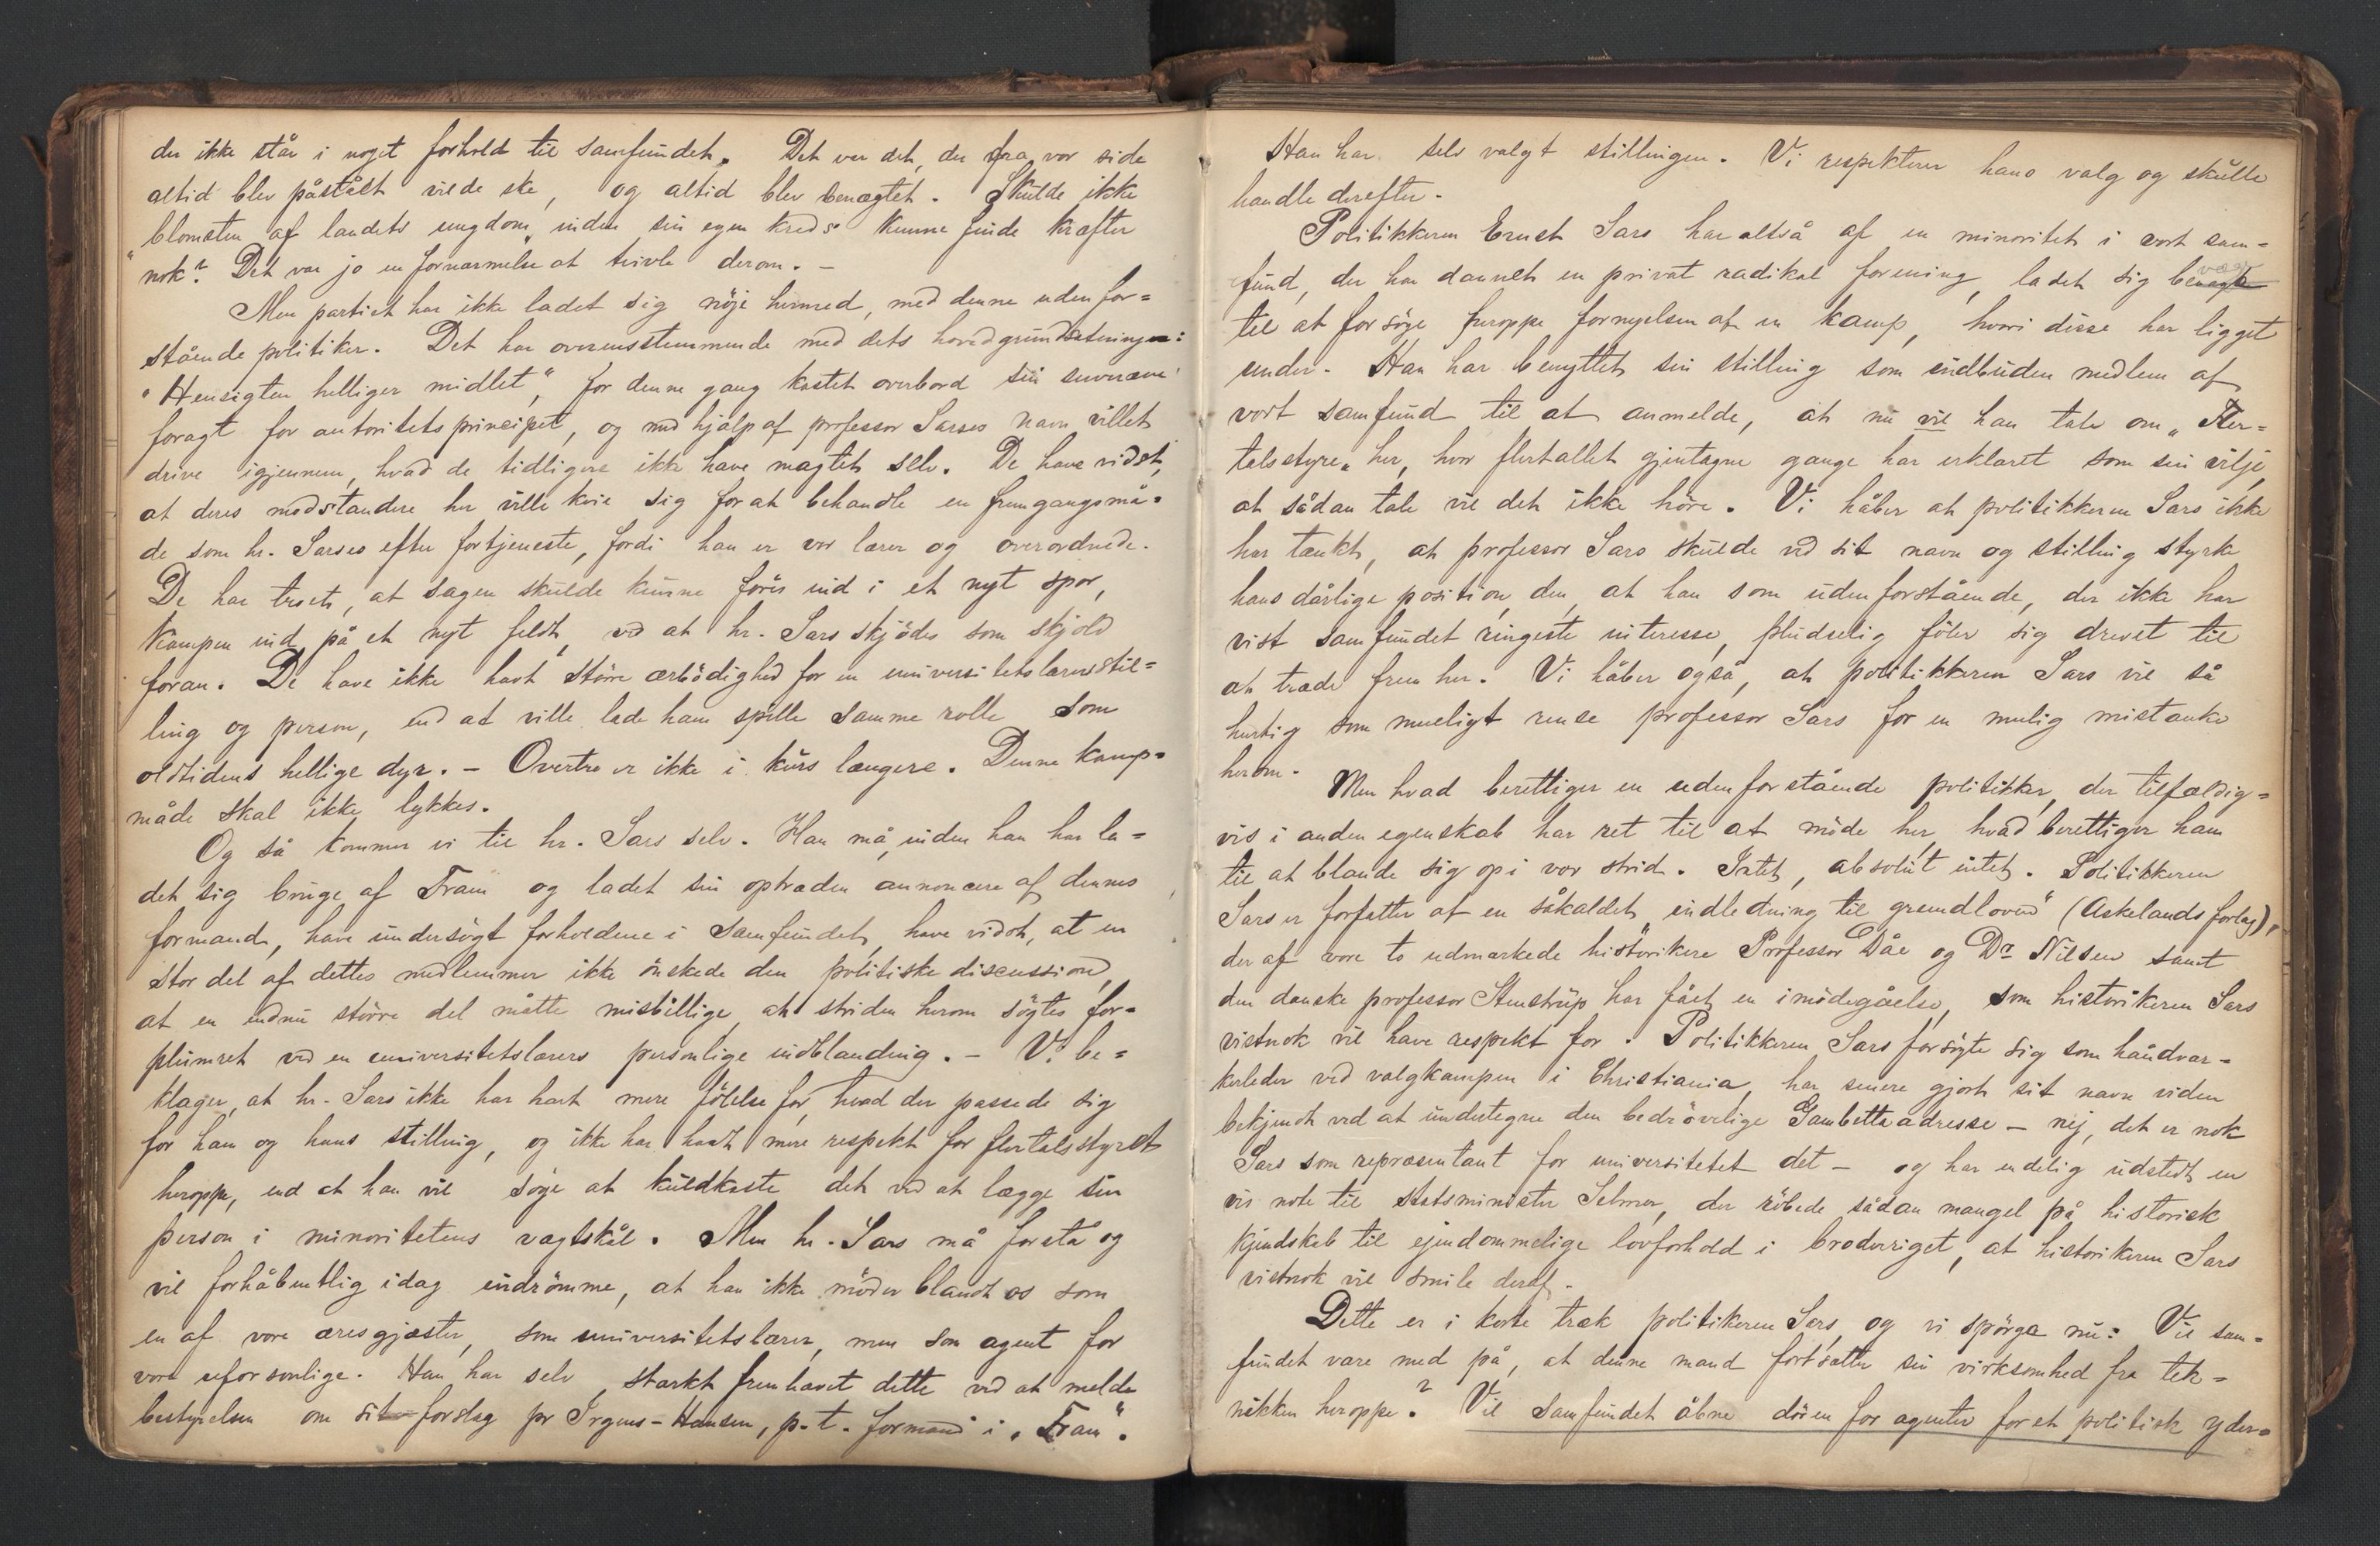 der ikke står i noget forhold til samfundet. Det var det, der fra vor side
altid blev påstået vilde ske, og altid blev benægtet. Skulde ikke
"blomsten af landets ungdom" inden sin egen kreds kunne finde kræfter
nok? Det var jo en fornærmelse at tvivle derom. –
Men partiet har ikke ladet sig nöje hermed, med denne udenfor=
stående politiker. Det har overensstemmende med dets hovedgrundsætninger:
"Hensigten helliger midlet", for denne gang kastet overbord sin suveræne
foragt for autoritetsprincipet, og med hjælp af professor Sarses navn villet
drive igjennem, hvad de tidligere ikke have magtet selv. De have vidst,
at deres modstandere her ville kvie sig for at behandle en fremgangsmå=
de som hr. Sarses efter fortjeneste, fordi han er vor lærer og overordnede.
De har troet, at sagen skulde kunne föres ind i et nyt spor,
kampen ind på et nyt feldt, ved at hr. Sars skjödes som skjold
foran. De have ikke havt större ærbödighed for en universitetslærerstil=
ling og person, end at ville lade ham spille samme rolle som
oldtidens hellige dyr. – Overtro er ikke i kurs længere. Denne kamp=
måde skal ikke lykkes.
Og så kommer vi til hr. Sars selv. Han må, inden han har la=
det sig bruge af Fram og ladet sin optræden annoncere af dennes
formand, have undersögt forholdene i Samfundet, have vidst, at en
stor del af dettes medlemmer ikke önskede den politiske discussion,
at en endnu större del måtte misbillige, at striden herom sögtes for=
plumret ved en universitetslærers personlige indblanding. – Vi be=
klager, at hr. Sars ikke har havt mere fölelse for, hvad der passede sig
for ham og hans stilling, og ikke har havt mere respekt for flertalsstyret
heroppe, end at han vil söge at kuldkaste det ved at lægge sin
person i minoritetens vægtskål. Men hr. Sars må forstå og
vil forhåbentlig idag indrömme, at han ikke möder blandt os som
en af vore æresgjæster, som universitetslærer, men som agent for
vore uforsonlige. Han har selv stærkt fremhævet dette ved at melde
bestyrelsen om sit forslag pr Irgens-Hansen, p.t. formand i "Fram".
Han har selv valgt stillingen. Vi respekterer hans valg og skulle
handle derefter.
Politikkeren Ernst Sars har altså af en minoritet i vort sam=
fund, der har dannet en privat radikal forening, ladet sig bevæge
til at forsöge heroppe fornyelsen af en kamp, hvori disse har ligget
under. Han har benyttet sin stilling som indbuden medlem af
vort samfund til at anmelde, at nu vil han tale om "Fler=
talsstyre" her, hvor flertallet gjentagne gange har erklæret som sin vilje,
at sådan tale vil det ikke höre. Vi håber at politikkeren Sars ikke
har tænkt, at professor Sars skulde ved sit navn og stilling styrke
hans dårlige position, den, at han som udenforstående, der ikke har
vist samfundet ringeste interesse, pludselig föler sig drevet til
at træde frem her. Vi håber også, at politikkeren Sars vil så
hurtig som mueligt rense professor Sars for en mulig mistanke
herom.
Men hvad berettiger en udenforstående politikker, der tilfældig=
vis i anden egenskab har ret til at möde her, hvad berettiger ham
til at blande sig op i vor strid. Intet, absolut intet. Politikkeren
Sars er forfatter af en såkaldet "indledning til grundloven" (Askelands forlag),
der af vore to udmærkede historikere Professor Dåe og Dr Nilsen samt
den danske professor Stenstrup har fået en imödegåelse, som historikeren Sars
vistnok vil have respekt for. Politikkeren Sars forsögte sig som håndvær=
kerleder ved valgkampen i Christiania, har senere gjort sit navn viden
bekjendt ved at undertegne den bedrövelige Gambettaadresse – nej, det er nok
Sars som repræsentant for universitetet det – og har endelig udstedt en
vis note til statsminister Selmer, der röbede sådan mangel på historisk
kjendskab til ejendommelige lovforhold i broderriget, at historikeren Sars
vistnok vil smile deraf.
Dette er i korte træk politikeren Sars, og vi spörge nu: Vil sam=
fundet være med på, at denne mand fortsætter sin virksomhed fra tek=
nikken heroppe? Vil Samfundet åbne dören for agenter for et politisk yder=